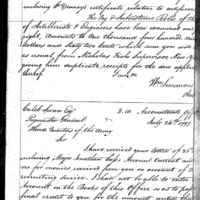 inclosing D Graneys certificate relation to
the Pay & Subsistence Rolls of the
of Artillerists & Engineers have been examined an
right, Amounts to One thousand four hundred, nin
dollars and Sixty two Cents which sum you will
as usual from Nicholas Fish Supervisor New Yo
giving him duplicate receipts for the due appli
thereof.
I am &c
Wm Simmons
Caleb Swan Esq
Paymaster General
Head Quarters of the Army
D. W. Accountants Of
July 26th 1797
Sir
I have received your Letter of 25th
inclosing Majr Jonathan Account Current and
for monies received from you on account of
recruiting service. I shall not be able to enter
Account on the Books of this Office so as to pa
final credit to you for the amount until the